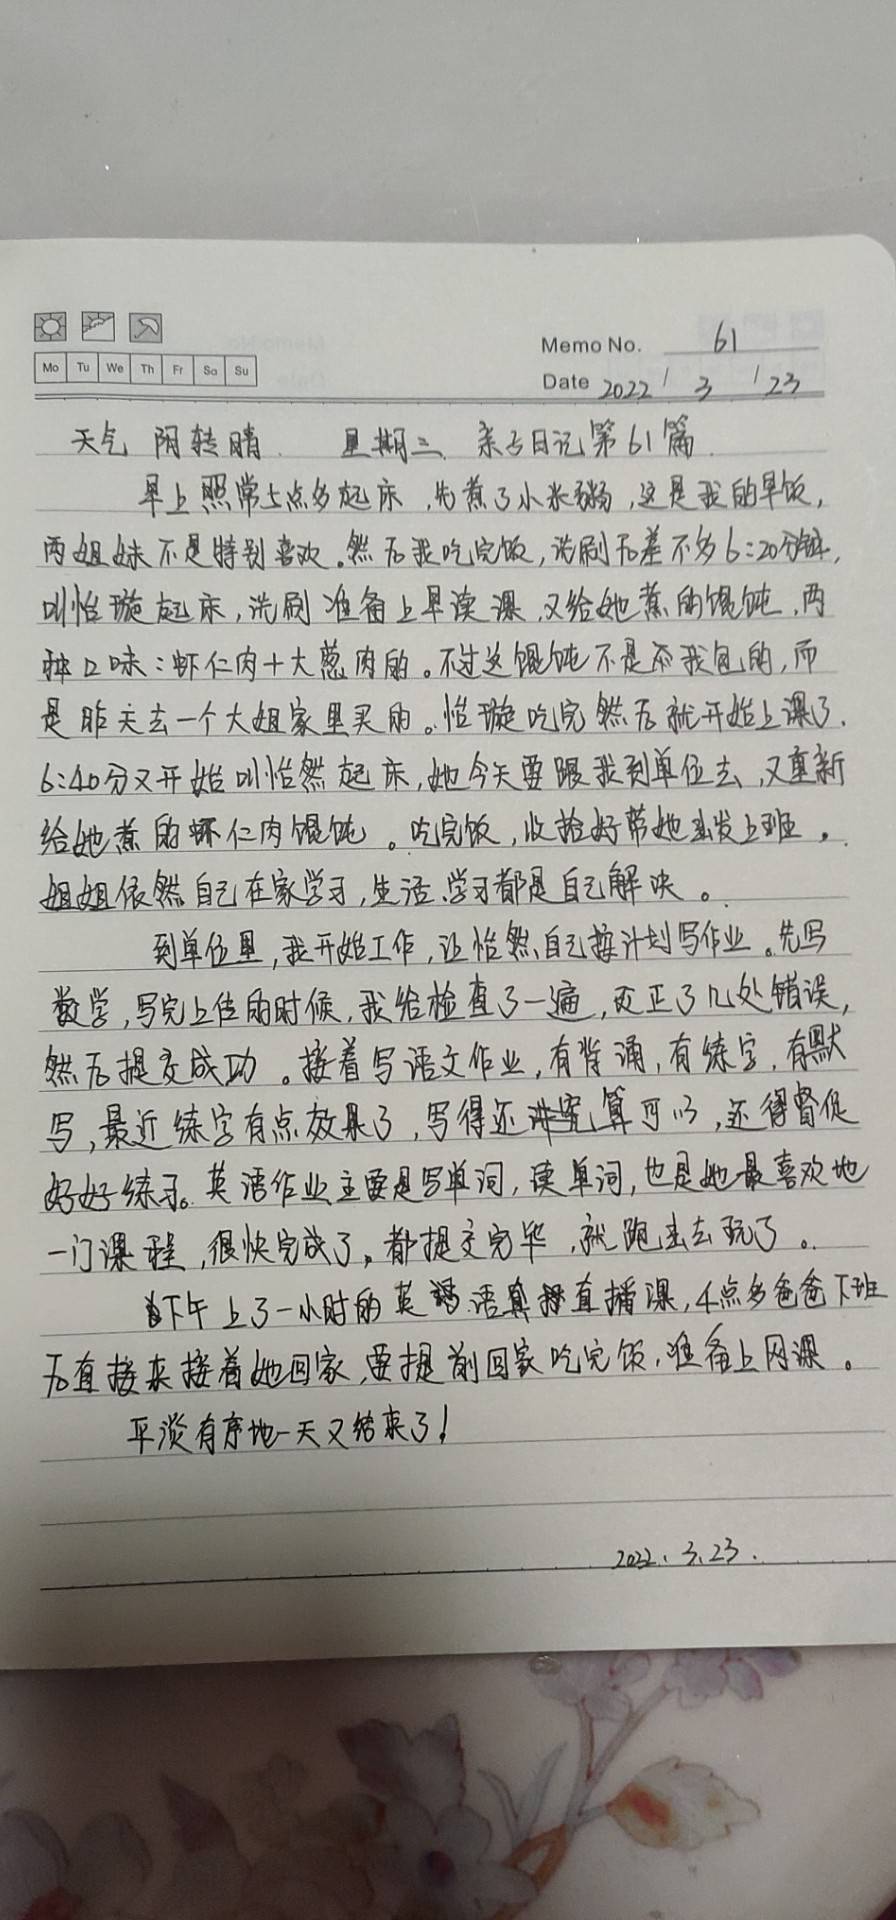 Memo No. 61
Mo Tu We Th Fr Sa Su
Date 2022 / 3 / 23
天气 阴转晴. 星期三. 亲子日记第61篇.
早上照常5点多起床,先煮了小米粥,这是我的早饭,
两姐妹不是特别喜欢。然后我吃完饭,洗刷后差不多6:20分钟,
叫怡璇起床,洗刷准备上早读课,又给她煮的馄饨,两
种口味:虾仁肉+大葱肉的。不过这馄饨不是我包的,而
是昨天去一个大姐家里买的。怡璇吃完然后就开始上课了.
6:40分又开始叫怡然起床,她今天要跟我到单位去,又重新
给她煮的虾仁肉馄饨。吃完饭,收拾好带她出发上班。
姐姐依然自己在家学习,生活、学习都是自己解决。
到单位里,我开始工作,让怡然自己按计划写作业。先写
数学,写完上传的时候,我给检查了一遍,改正了几处错误,
然后提交成功。接着写语文作业,有背诵,有练字,有默
写,最近练字有点效果了,写得还算可以,还得督促
好好练习。英语作业主要是写单词,读单词,也是她最喜欢地
一门课程,很快完成了,都提交完毕,就跑出去玩了。
下午上了一小时的英语直播课,4点多爸爸下班
后直接来接着她回家,要提前回家吃完饭,准备上网课。
平淡有序地一天又结束了!
2022.3.23.